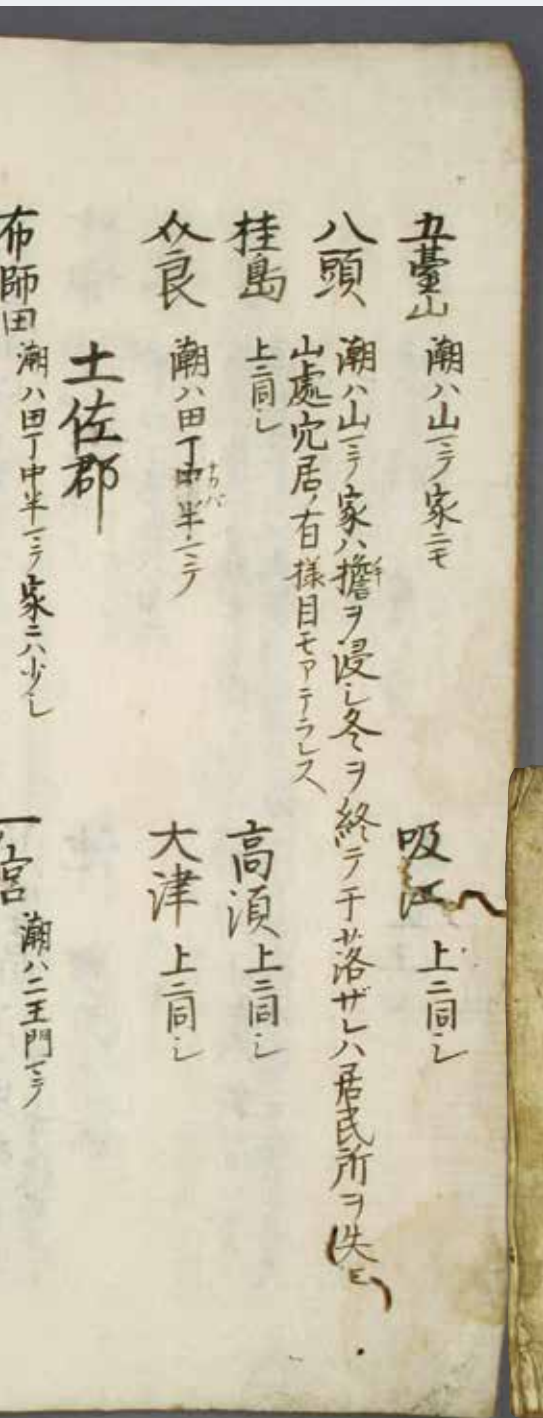 五臺山 潮ハ山ニテ家ニモ 吸江 上ニ同シ
八頭 潮ハ山ニテ家ハ擔ヲ浸シ冬ヲ終テ干落ザレハ居民所ヲ失
山處穴居ノ有様目モアテラレス
桂島 上ニ同シ 高須 上ニ同シ
介良 潮ハ田丁中半ニテ 大津 上ニ同シ
土佐郡
布師田 潮ハ田丁中半ニテ家ニハ少シ 一宮 潮ハ二王門ニテ